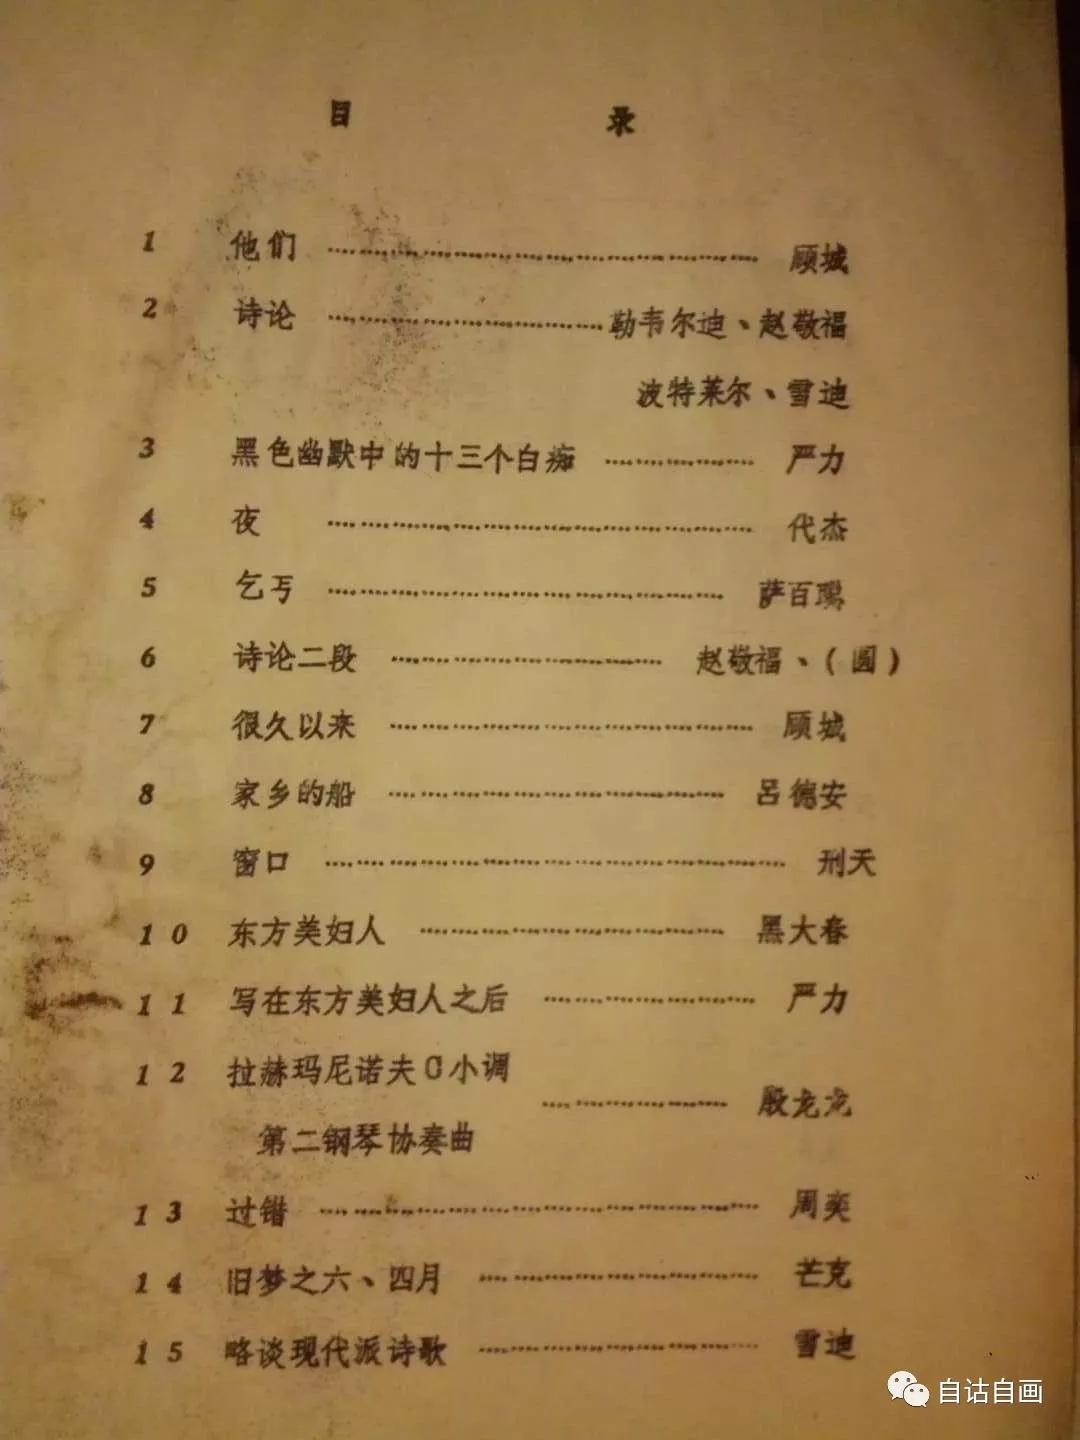 目 录
1 他们 ………………………… 顾城
2 诗论 ………………… 勒韦尔迪、赵敬福
波特莱尔、雪迪
3 黑色幽默中的十三个白痴 ………… 严力
4 夜 ………………………… 代杰
5 乞丐 ………………………… 萨百
6 诗论二段 ………………… 赵敬福、(圆)
7 很久以来 ……………………… 顾城
8 家乡的船 ……………………… 吕德安
9 窗口 ………………………… 刑天
10 东方美妇人 ………………… 黑大春
11 写在东方美妇人之后 ………… 严力
12 拉赫玛尼诺夫C小调
………… 殷龙龙
第二钢琴协奏曲
13 过错 ………………………… 周奕
14 旧梦之六、四月 ……………… 芒克
15 略谈现代派诗歌 ……………… 雪迪
自诂自画